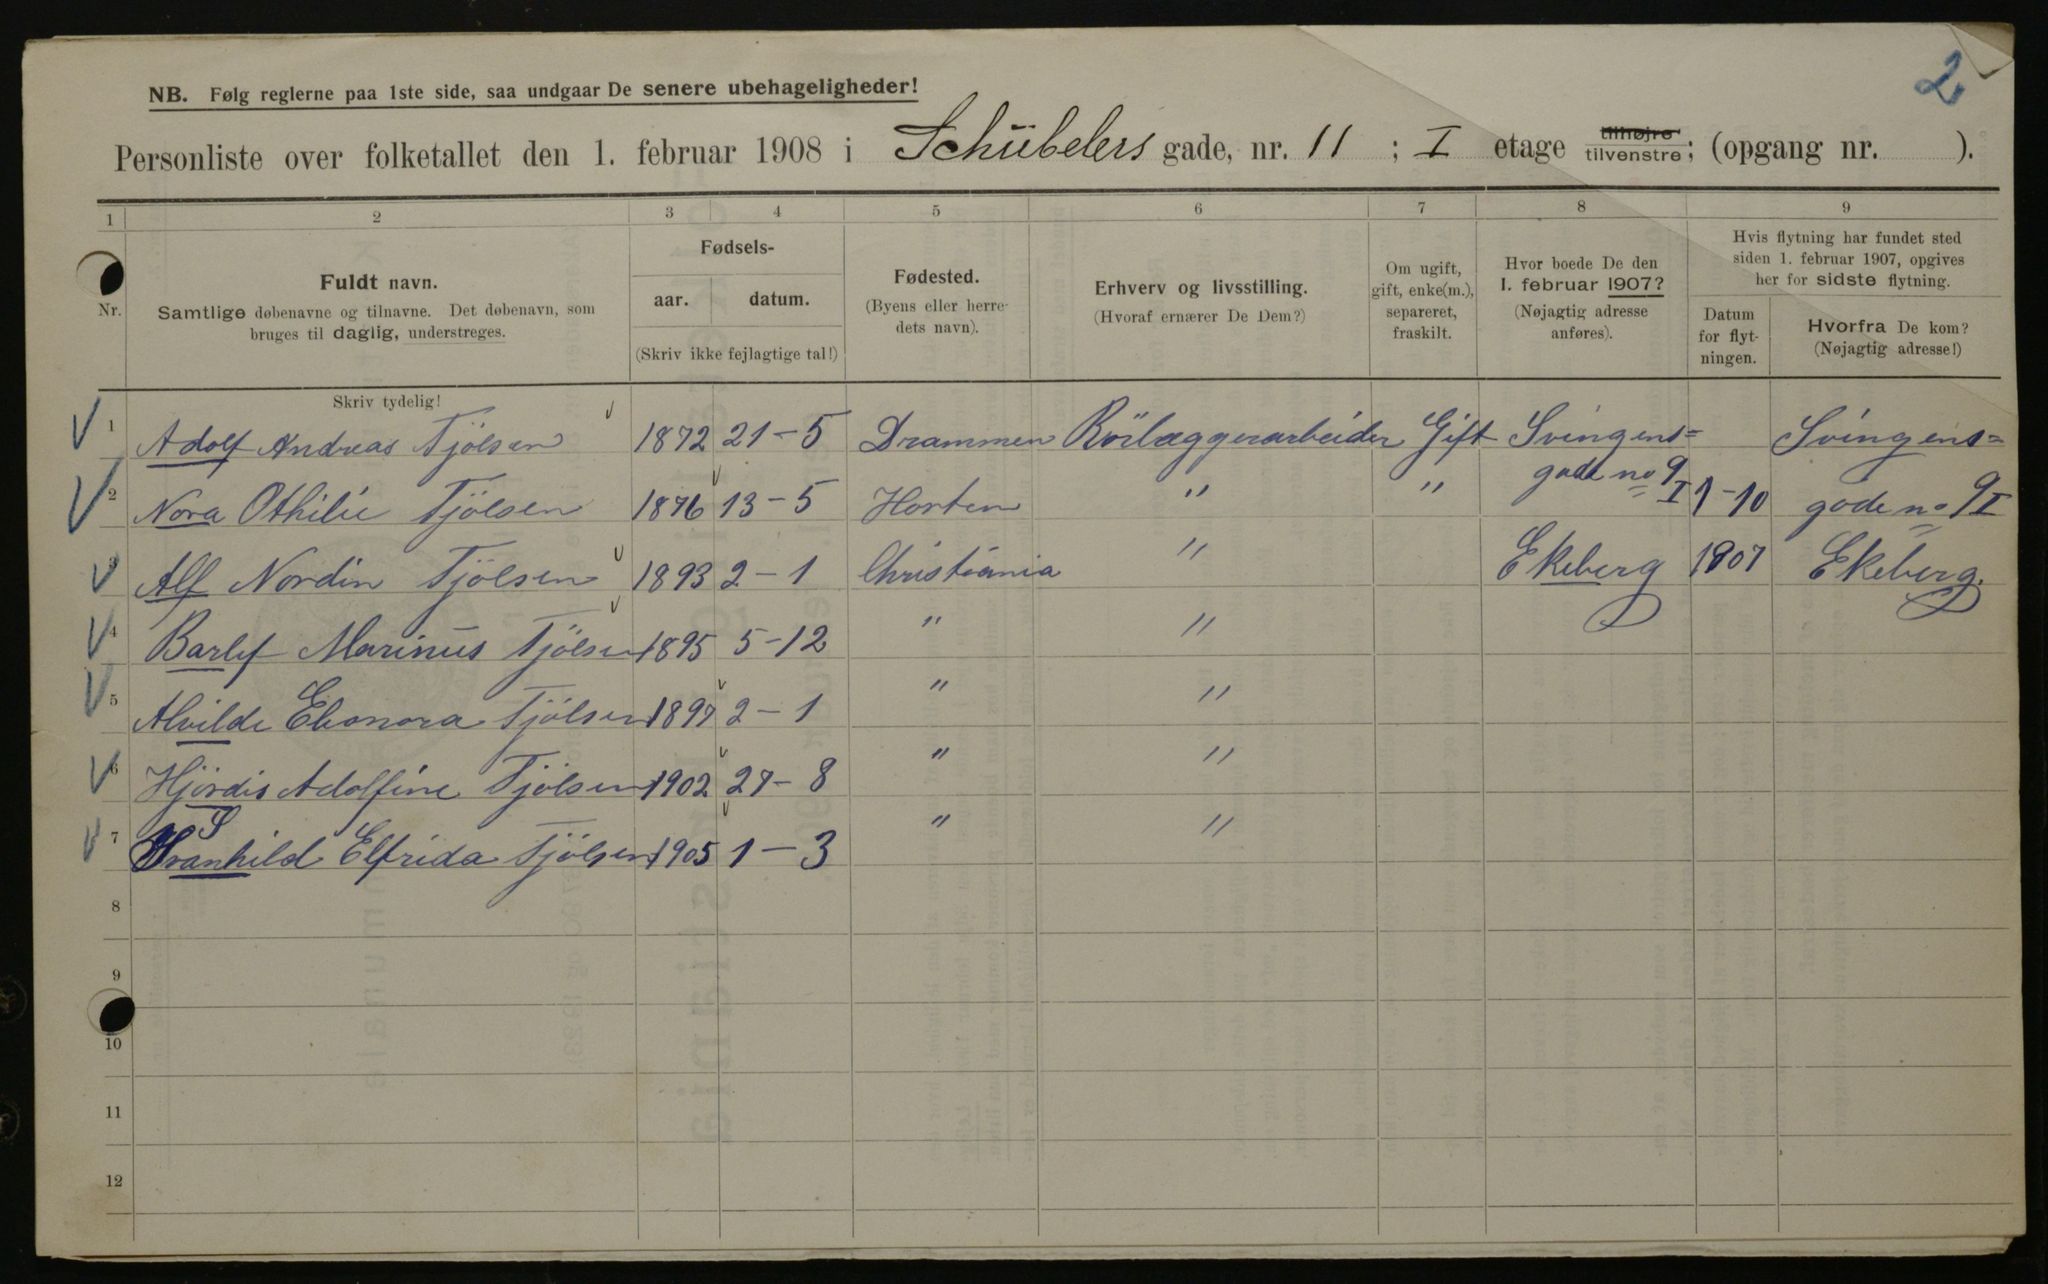 2
NB. Følg reglerne paa 1ste side, saa undgaar De senere ubehageligheder!
Personliste over folketallet den 1. februar 1908 i Schübelers gade, nr. 11 ; I etage tilhøjre tilvenstre; (opgang nr. ).
1 2 3 4 5 6 7 8 9
Nr.
Fuldt navn.
Samtlige døbenavne og tilnavne. Det døbenavn, som
bruges til daglig, understreges.
Fødsels-
aar. datum.
(Skriv ikke fejlagtige tal!)
Fødested.
(Byens eller herre-
dets navn).
Erhverv og livsstilling.
(Hvoraf ernærer De Dem?)
Om ugift,
gift, enke(m.),
separeret,
fraskilt.
Hvor boede De den
1. februar 1907?
(Nøjagtig adresse
anføres).
Hvis flytning har fundet sted
siden 1. februar 1907, opgives
her for sidste flytning.
Datum
for flyt-
ningen.
Hvorfra De kom?
(Nøjagtig adresse!)
Skriv tydelig!
1 Adolf Andreas Tjölsen 1872 21-5 Drammen Rörlæggerarbeider Gift Svingens= Svingens=
2 Nora Othilie Tjölsen 1876 13-5 Horten " " gade no 9 I 1-10 gade no 9 I
3 Alf Nordin Tjölsen 1893 2-1 Christiania " Ekeberg 1907 Ekeberg.
4 Marinus Tjölsen 1895 5-12 " "
5 Alvilde Eleonora Tjölsen 1897 2-1 " "
6 Hjördis Adolfine Tjölsen 1902 27-8 " "
7 Svanhild Elfrida Tjölsen 1905 1-3 " "
8
9
10
11
12